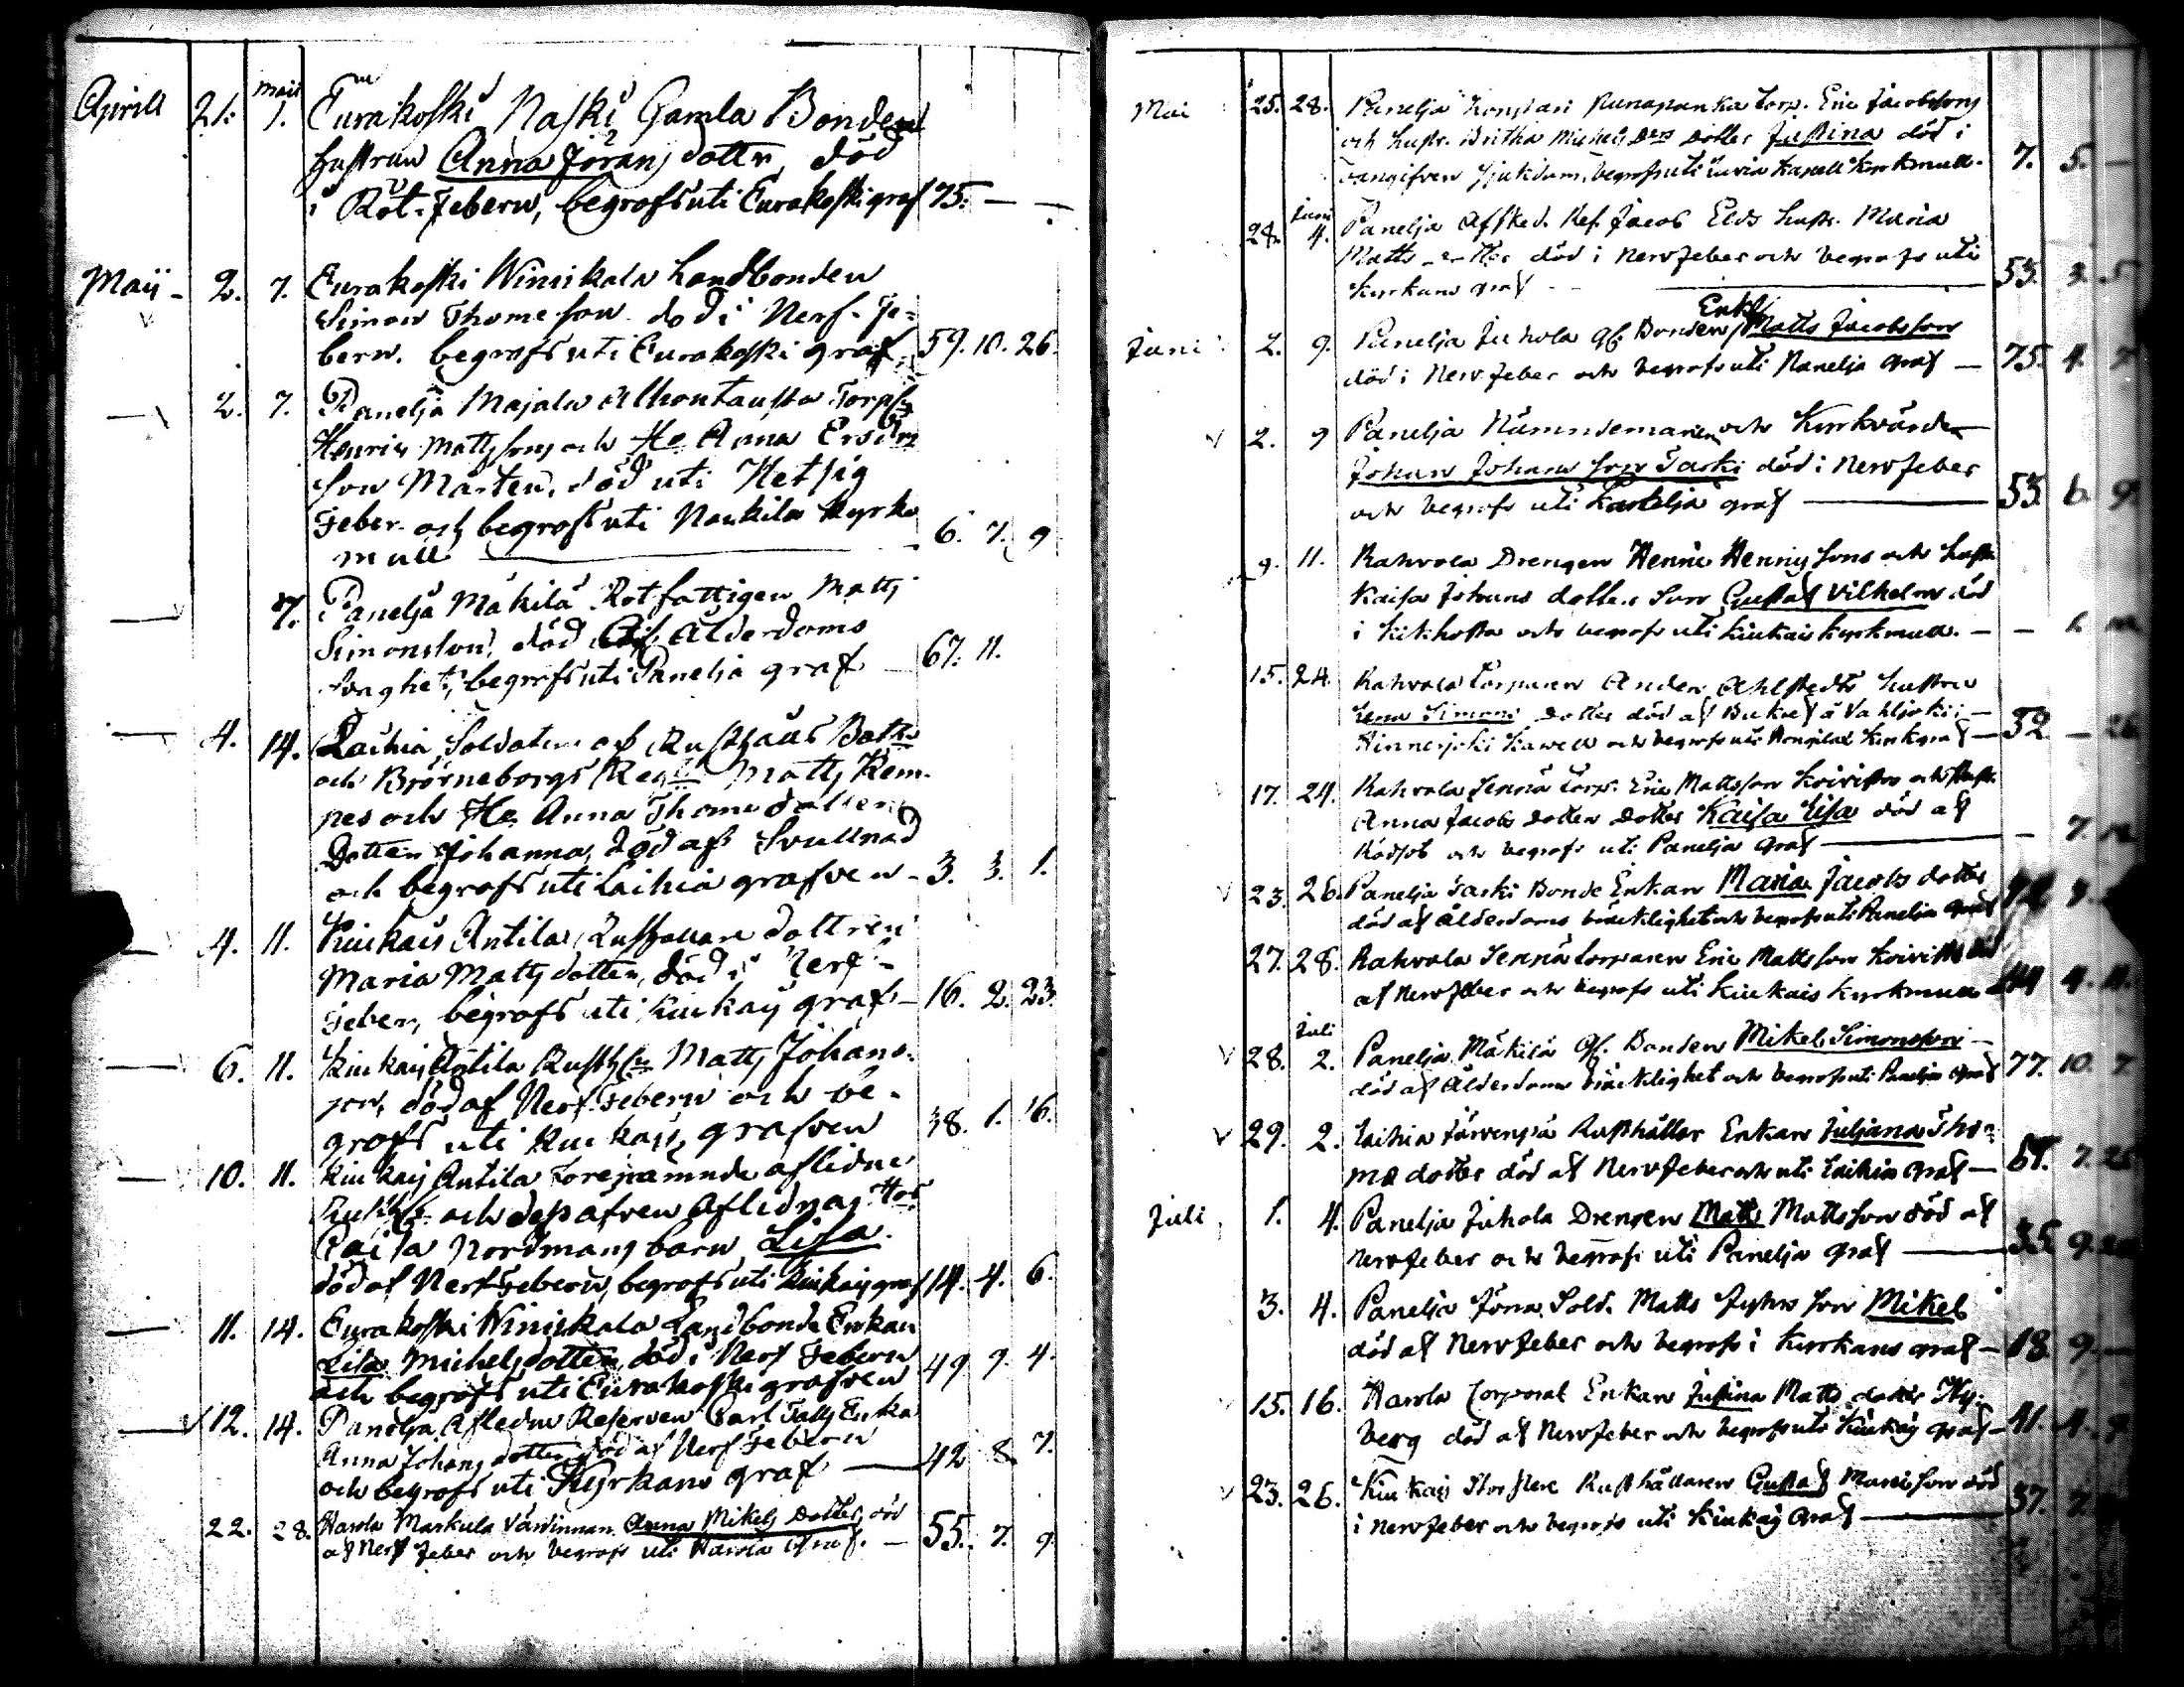 Aprill 21. Maii 1. Eurakoski Naski Gamla Bonden
hustrun Anna Jöransdotter, död
i Röt-Febern, begrofs uti Eurakoski graf 75. — —
Maij 2. 7. Eurakoski Winnikala Landbonden
Simon Thomeson död i Nerf-Fe-
bern. begrofs uti Eurakoski graf. 59. 10. 26.
2. 7. Panelja Majala Alhontausta
Henric Mattssons och H Anna Ersd
son Mårten, död uti Hetsig
Feber och begrofs uti Naukila Kyrko
mull 6. 7. 9
7. Panelja Mäkilä Rotfattigen Matts
Simonsson, död af Ålderdoms
svaghet, begrofs uti Panelja graf 67. 11.
4. 14. Laihia Soldaten
och Björneborgs Reg Matts Kem-
pes och H Anna Thomædotters
Dotter Johanna, död af Svullnad
och begrofs uti Laihia grafven 3. 3. 1.
4. 11. Kiukais Antila Dottren
Maria Mattsdotter, död i Nerf-
Feber, begrofs uti Kiukais graf 16. 2. 23.
6. 11. Kiukais Antila Matts Johans-
son, död af Nerf-Febern och be-
grofs uti Kiukais grafven 38. 1. 16.
10. 11. Kiukais Antila Förenämnde aflidne
och dess äfven aflidnas
Caisa Nordmans barn Lisa.
död af Nerf-Febern, begrofs uti Kiukais graf 14. 4. 6.
11. 14. Eurakoski Winnikala Landbonde Enkan
Lisa Michelsdotter, död i Nerf Febern
och begrofs uti Eurakoski grafven 49 9. 4.
12. 14. Panelja Afledne Reserven Carl Enka
Anna Johansdotter, död af Nerf Febern
och begrofs uti Kyrkans graf 42 8 7.
22. 28. Harola Markula Värdinnan Anna Mikels Dotter, död
af Nerf Feber och begrofs uti Harola Graf. 55. 7. 9.
Mai 25. 28. Panelja Torp. Eric Jacobssons
och hustr. Britha Michels Dotter Justina död i
sjukdom, begrofs uti Kapell Kyrkmull. 7. 5. —
28. Juni 4. Panelja Afsked. Ref. Jacob Elds hustr. Maria
Matts död i Nervfeber och begrofs uti
Kyrkans graf 53. 3. 5
Enka
Juni 2. 9. Panelja Juhola Gf. Bonden Matts Jacobsson
död i Nervfeber och begrofs uti Panelja graf 75. 4. 7
2. 9 Panelja Nämndemannen och Kyrkvärden
Johan Johansson Sarki död i Nervfeber
och begrofs uti graf 53 6 9.
9. 11. Rahvola Drengen Henric Henrics sons och hustr.
Kaisa Johans dotters son Gustaf Vilhelm död
i Kikhosta och begrofs uti Kiukais Kyrkmull. —
15. 24. Rahvola Torparen Anders Ahlstedts hustru
Lena Simons Dotter död af
Hinnerjoki Kapell och begrofs uti Kyrkgraf 52 — 26
17. 24. Rahvola Torp. Eric Mattsson Koivisto och hustr.
Anna Jacobs Dotters Dotter Kaisa Lisa död af
Rödsot och begrofs uti Panelja Graf — 7.
23. 26. Panelja Sarki Bonde Enkan Maria Jacobs dotter
död af Ålderdoms bräcklighet och begrofs uti Panelja Graf
27. 28. Rahvola Torparen Eric Mattsson Koivisto död
af Nervfeber och begrofs uti Kiukais Kyrkmull 44 4.
28. Juli 2. Panelja Mäkilä Gf. Bonden Mikel Simonsson
död af Ålderdoms bräcklighet och begrofs uti Panelja Graf 77. 10. 7
29. 2. Laihia Järvenpä Rusthållar Enkan Juliana Tho-
mædotter död af Nervfeber och uti Laihia Graf 7. 25
Juli 1. 4. Panelja Juhola Drengen Matts Mattsson död af
Nervfeber och begrofs uti Panelja Graf 35 9.
3. 4. Panelja Sold. Matts son Mikel
död af Nervfeber och begrofs i Kyrkans graf 18 9. —
15. 16. Harola Corporal Enkan Justina Matts dotter
berg död af Nervfeber och begrofs uti Kiukais Graf 41. 4.
23. 26. Kiukais Rusthållaren Gustaf död
i Nervfeber och begrofs uti Kiukais Graf 37. 2